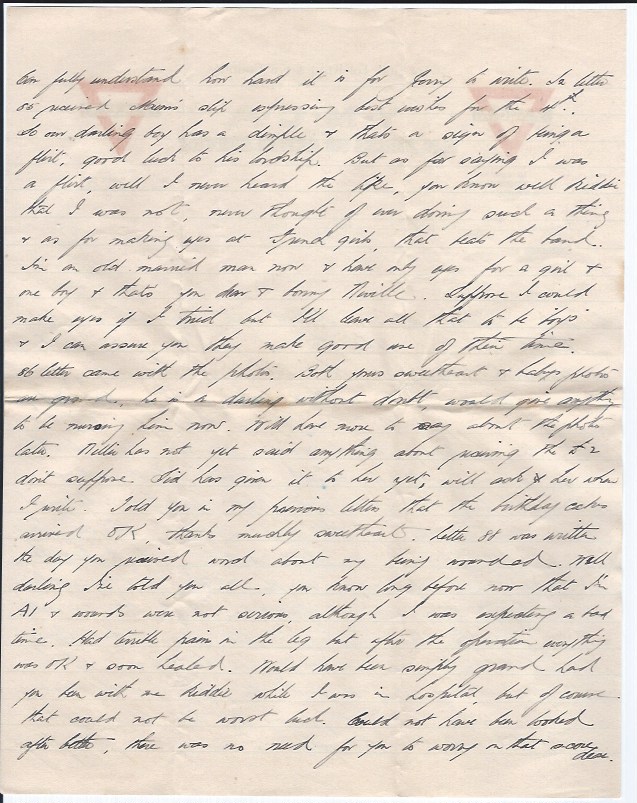 Can fully understand how hard it is for you to write. In letter
86 received Mum's slip expressing best wishes for the 4th.
So our darling boy has a dimple & thats a sign of being a
flirt, good luck to his lordship. But as for saying I was
a flirt, well I never heard the like, you know well Kiddie
that I was not, never thought of ever doing such a thing
& as for making eyes at French girls, that beats the band.
I'm an old married man now & have only eyes for a girl &
one boy & thats you dear & Neville. Suppose I could
make eyes if I tried but I'll leave all that to the boys
& I can assure you they make good use of their time.
86 letter came with the photos. Both yours sweetheart & babys photos
are grand, he is a darling without doubt, would give anything
to be nursing him now. Will have more to say about the photos
later. Nellie has not yet said anything about receiving the £2
don't suppose Sid has given it to her yet, will ask her when
I write. Told you in my previous letter that the birthday cakes
arrived OK, thanks muchly sweetheart. Letter 88 was written
the day you received word about my being wounded. Well
darling I've told you all, you know long before now that I'm
A1 & wounds were not serious, although I was expecting a bad
time. Had terrible pain in the leg but after the operation everything
was OK & soon healed. Would have been simply grand had
you been with me Kiddie while I was in hospital, but of course
that could not be worst luck. Could not have been looked
after better, there was no need for you to worry on that score
dear.